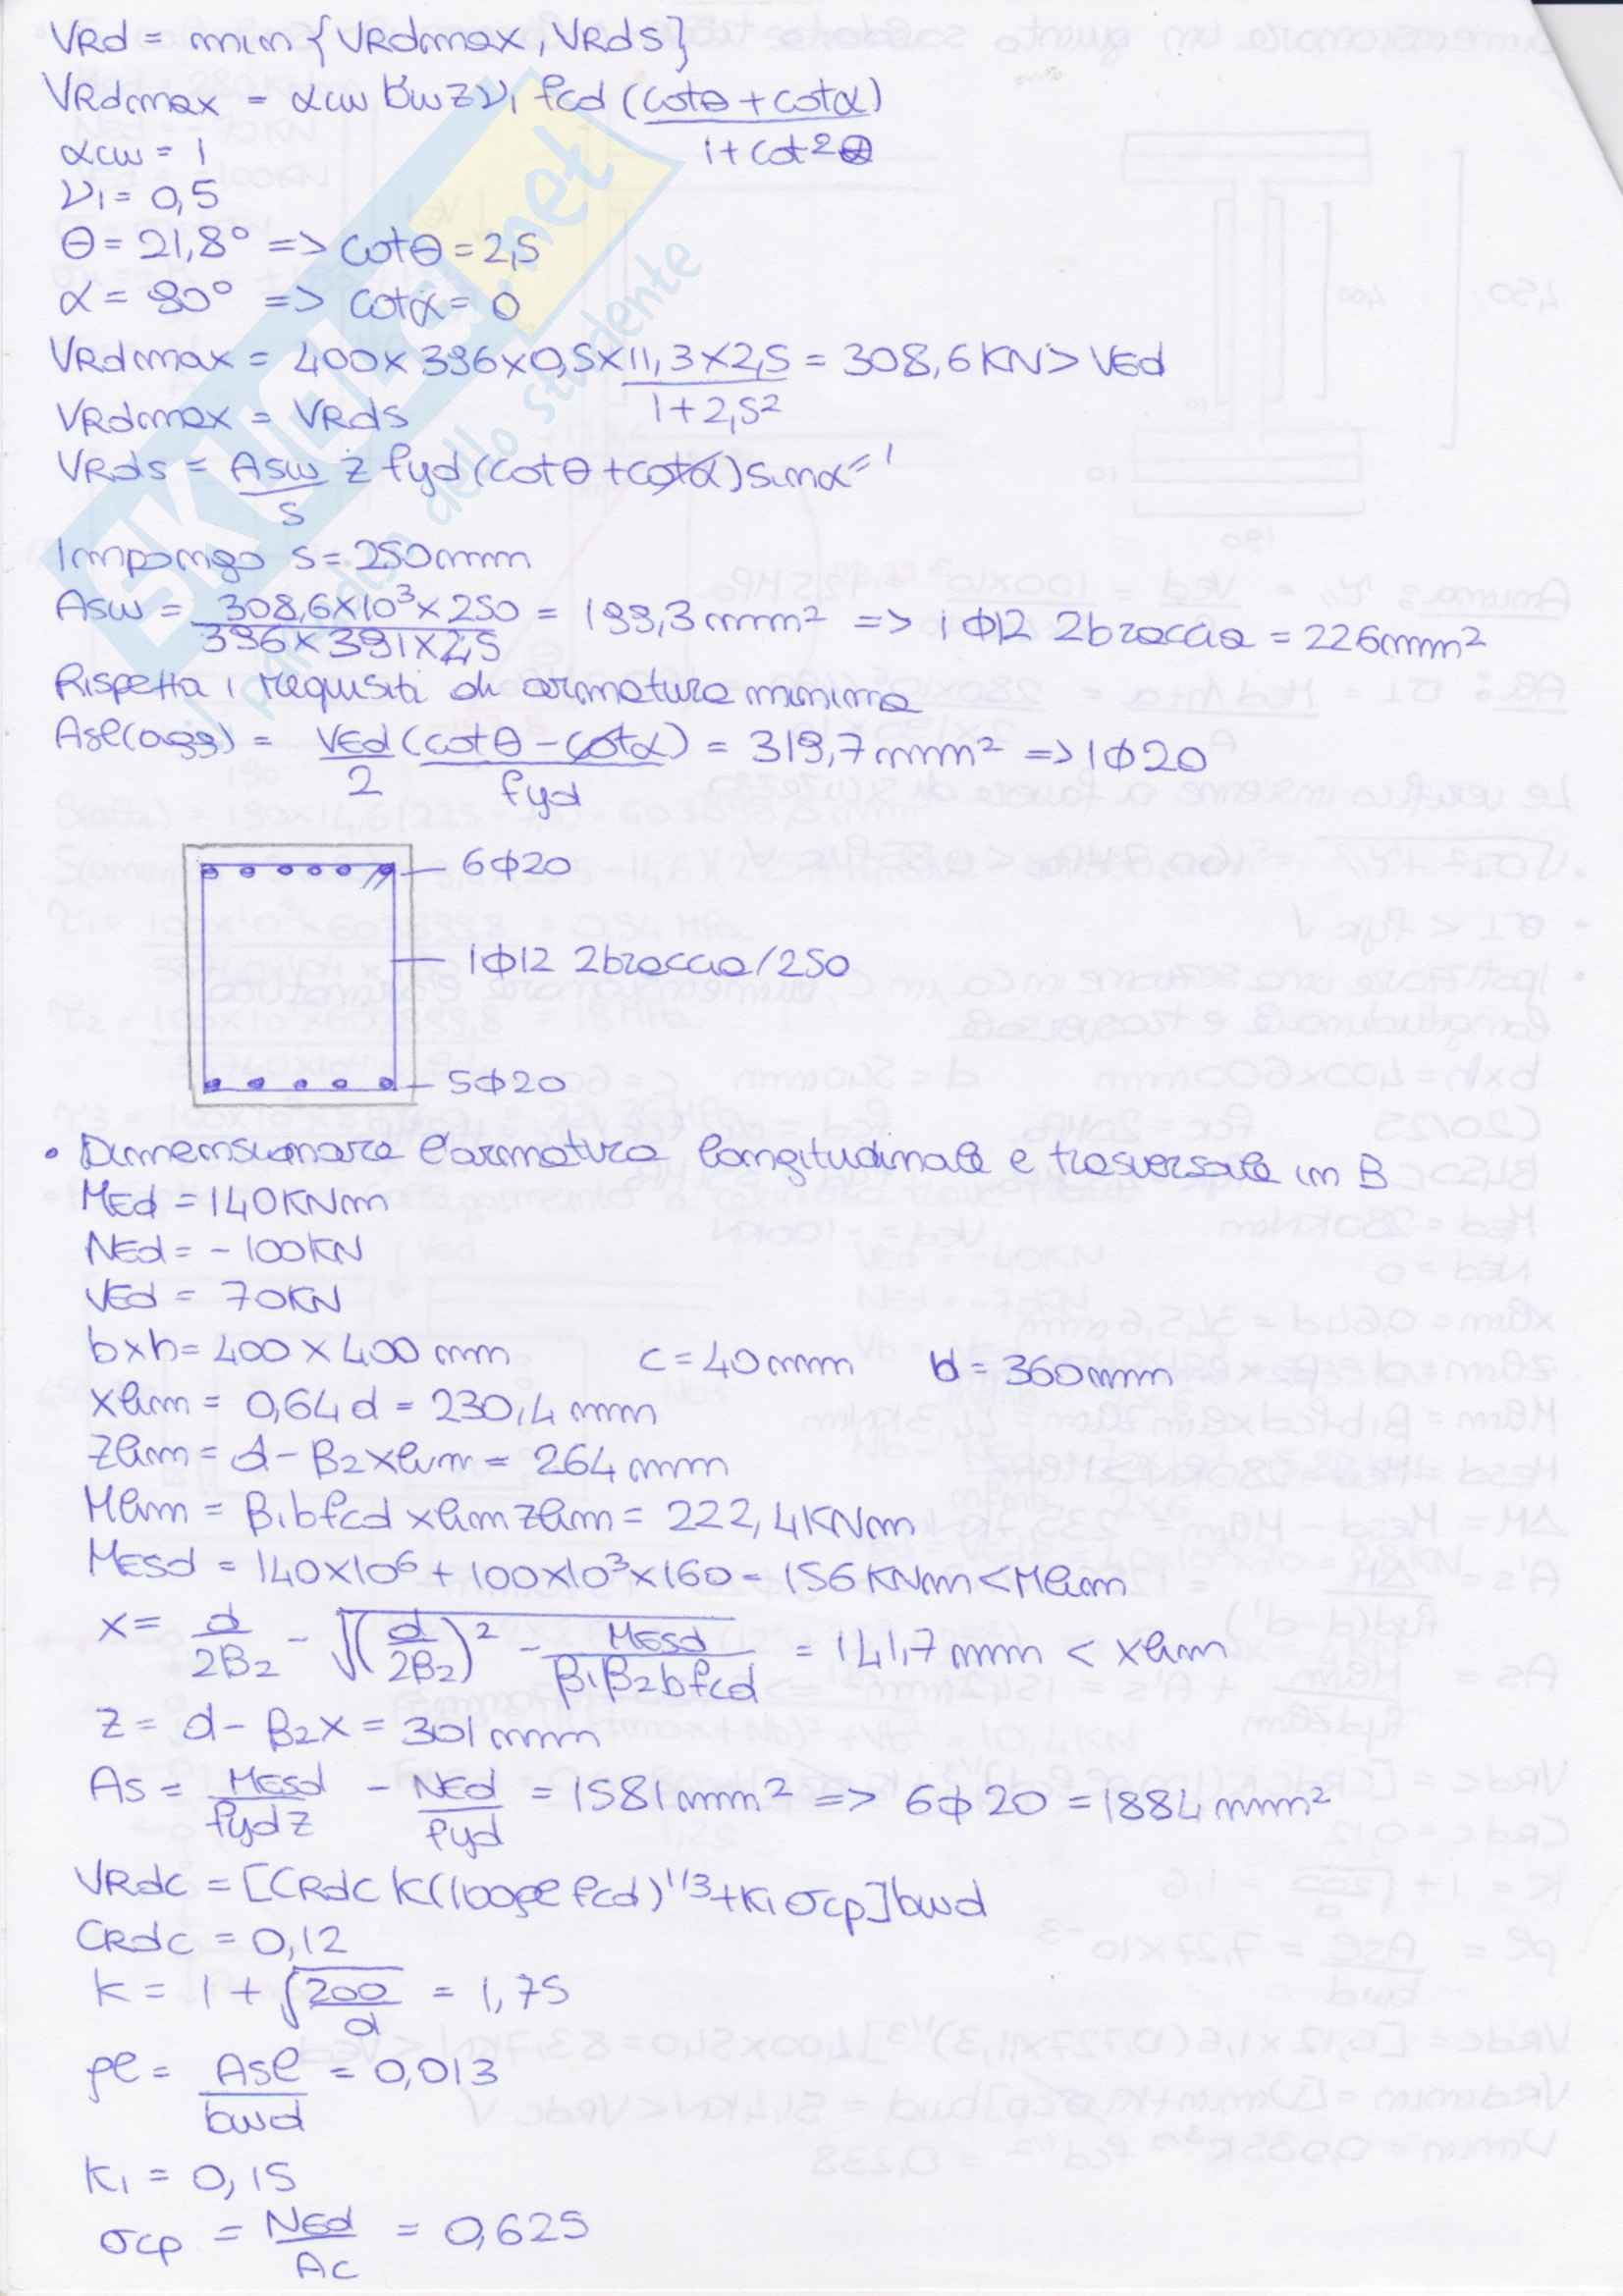 VRd = min {VRdmax, VRds}
VRdmax = αcw bw z ν1 fcd (cotθ + cotα) / 1 + cot²θ
αcw = 1
ν1 = 0,5
θ = 21,8° => cotθ = 2,5
α = 90° => cotα = 0
VRdmax = 400 x 396 x 0,5 x 11,3 x 2,5 / 1 + 2,5² = 308,6 KN > VEd
VRdmax = VRds
VRds = Asw / s z fyd (cotθ + cotα) sinα = 1
Impongo s = 250 mm
Asw = 308,6 x 10³ x 250 / 396 x 391 x 2,5 = 199,3 mm² => 1 φ12 2 braccia = 226 mm²
Rispetta i requisiti di armatura minima
Asl(agg) = VEd / 2 (cotθ - cotα) / fyd = 319,7 mm² => 1φ20
6φ20
1φ12 2braccia/250
5φ20
• Dimensionare l'armatura longitudinale e trasversale in B
MEd = 140 KNm
NEd = - 100 KN
VEd = 70 KN
bxh = 400 x 400 mm c = 40 mm d = 360 mm
xlim = 0,64 d = 230,4 mm
zlim = d - β2 xlim = 264 mm
Mlim = β1 b fcd xlim zlim = 222,4 KNm
MEsd = 140x10⁶ + 100x10³x160 = 156 KNm < Mlim
x = d / 2β2 - √((d / 2β2)² - MEsd / β1β2 b fcd) = 141,7 mm < xlim
z = d - β2x = 301 mm
As = MEsd / fyd z - NEd / fyd = 1581 mm² => 6φ20 = 1884 mm²
VRdc = [CRdc K(100ρl fcd)^1/3 + K1 σcp] bwd
CRdc = 0,12
K = 1 + √(200 / d) = 1,75
ρl = Asl / bwd = 0,013
K1 = 0,15
σcp = NEd / Ac = 0,625
SKUOLA.net